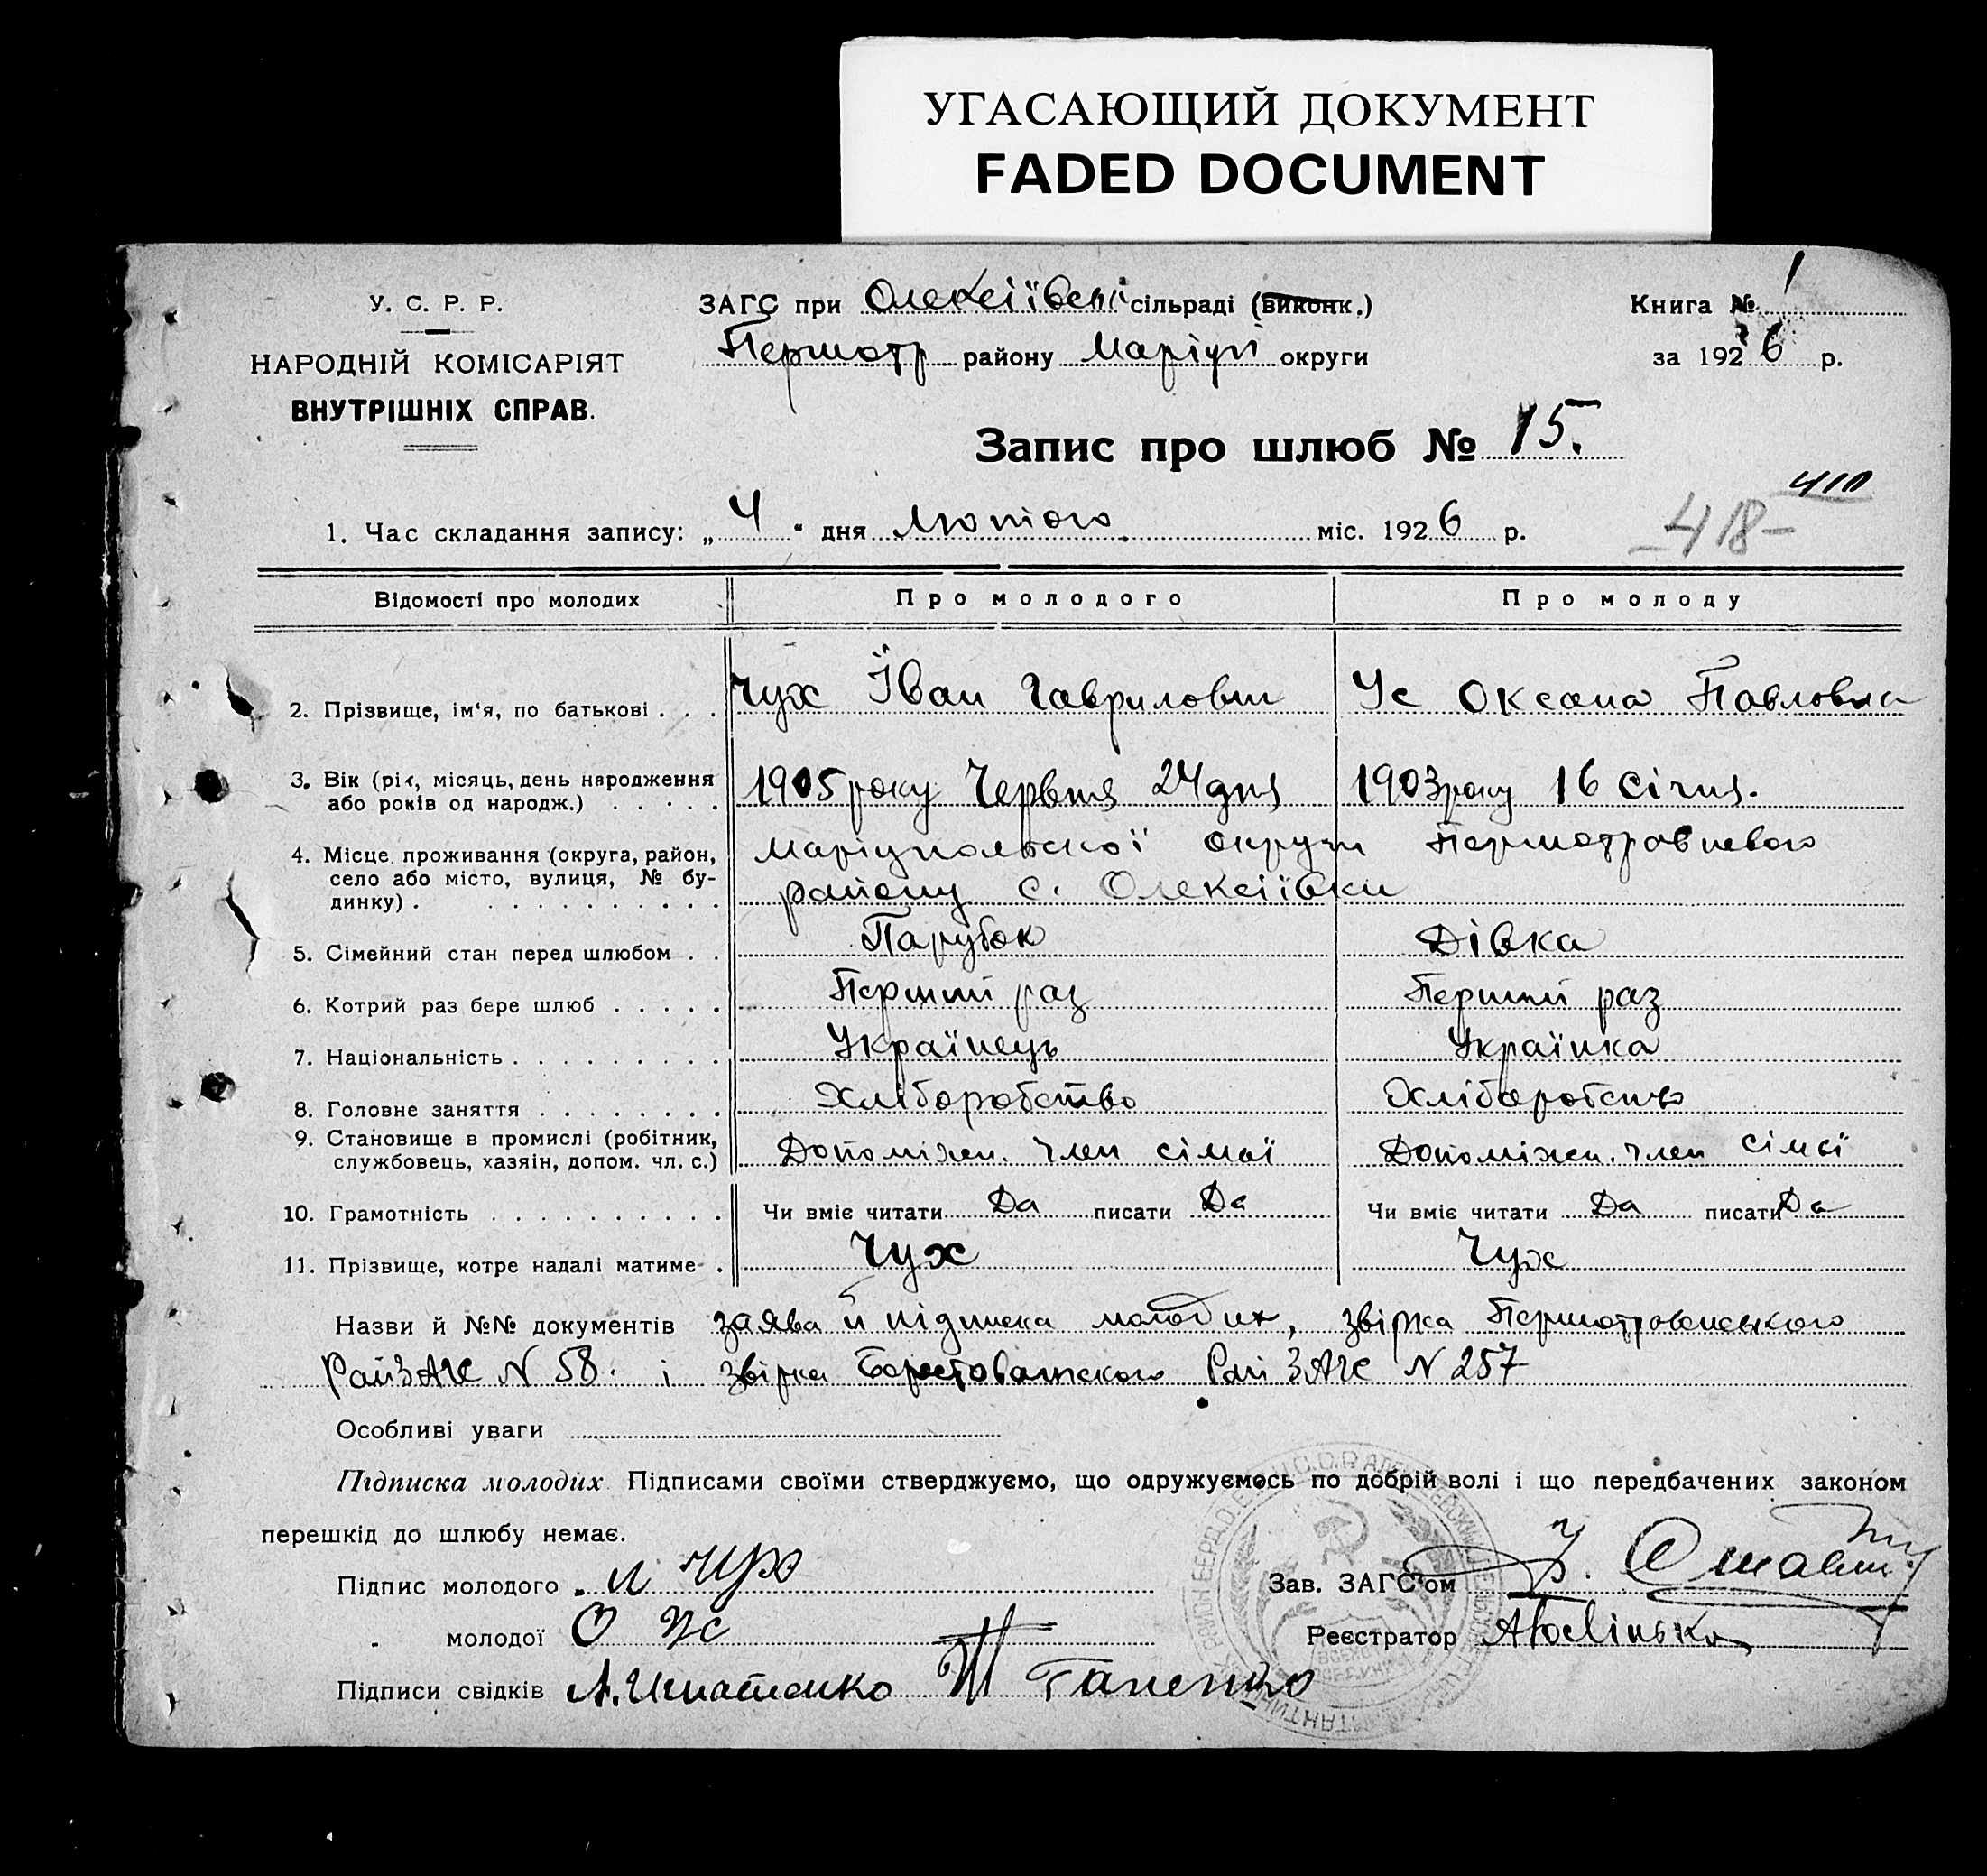 УГАСАЮЩИЙ ДОКУМЕНТ
FADED DOCUMENT
У. С. Р. Р.
НАРОДНІЙ КОМІСАРІЯТ
ВНУТРІШНІХ СПРАВ.
ЗАГС при Олексіївській сільраді (виконк.)
Першотр району Маріуп округи
Книга № 1
за 1926 р.
Запис про шлюб № 15.
410
418
1. Час складання запису: „4" дня Лютого міс. 1926 р.
Відомості про молодих Про молодого Про молоду
2. Прізвище, ім'я, по батькові . . . Чух Їван Гаврилович Ус Оксана Павловна
3. Вік (рік, місяць, день народження 1905 року Червня 24 дня 1903 року 16 Січня.
або років од народж.) . . . . .
4. Місце проживання (округа, район, Маріупольської округи Першотравневого
село або місто, вулиця, № бу- району с. Олексіївки
динку) . . . . . . . . . . .
5. Сімейний стан перед шлюбом . . Парубок Дівка
6. Котрий раз бере шлюб . . . . . Перший раз Перший раз
7. Національність . . . . . . . . . Українець Українка
8. Головне заняття . . . . . . . . Хліборобство Хліборобство
9. Становище в промислі (робітник, Допоміжн. член сімьї Допоміжн. член сімьї
службовець, хазяїн, допом. чл. с.)
10. Грамотність . . . . . . . . . . Чи вміє читати Да писати Да Чи вміє читати Да писати Да
11. Прізвище, котре надалі матиме . Чух Чух
Назви й №№ документів заява й підписка молодих, звірка
РайЗАГС N 58. і звірка Рай ЗАГС N 257
Особливі уваги
Підписка молодих Підписами своїми стверджуємо, що одружуємось по добрій волі і що передбачених законом
перешкід до шлюбу немає.
Підпис молодого И Чух Зав. ЗАГС'ом
молодої О Ус Реєстратор
Підписи свідків А. Игнатенко Гапенко